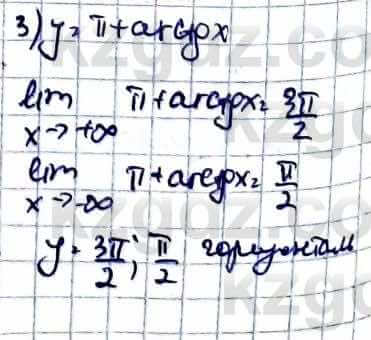 3) y = π + arctg x
lim π + arctg x = 3π/2
x → +∞
lim π + arctg x = π/2
x → -∞
y = 3π/2 ; π/2 горизонтал